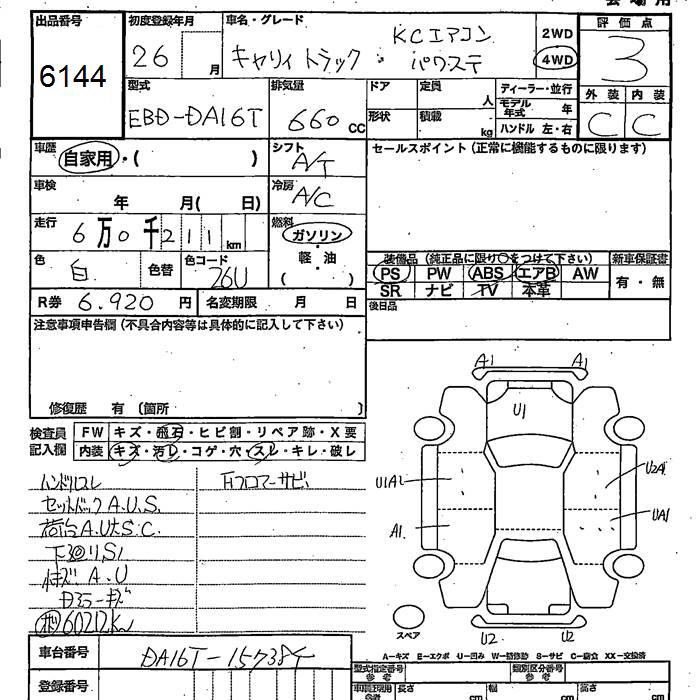 出品番号 初度登録年月 車名・グレード 評価点
6144 26 月 キャリィ トラック・ KCエアコン パワステ 2WD 4WD 3
型式 排気量 ドア 定員 人 ディーラー・並行 外装 内装
EBD-DA16T 660 CC 形状 積載 kg モデル年式 年 ハンドル 左・右 C C
車歴 自家用・( ) シフト A/T セールスポイント(正常に機能するものに限ります)
車検 年 月( 日) 冷房 A/C
走行 6万0千211km 燃料 ガソリン
色 白 色替 色コード 26U 軽・油 ( )
装備品(純正品に限り〇をつけて下さい) 新車保証書
PS PW ABS エアB AW 有・無
SR ナビ TV 本革
R券 6.920 円 名変期限 月 日 後日品
注意事項申告欄(不具合内容等は具体的に記入して下さい)
修復歴 有 (箇所 )
検査員 FW キズ・飛石・ヒビ割・リペア跡・X要
記入欄 内装 キズ・汚レ・コゲ・穴・スレ・キレ・破レ
A1 A1
U1
U1A2 U2A1
A1 UA1
ハンドルスレ 下フロアーサビ
セットバックA.U.S.
荷台A.U大S.C.
下廻りS1
A.U
60212km
スペア U2 U2
A-キズ E-エクボ U-凹み W-補修跡 S-サビ C-腐食 XX-交換済
車台番号 型式指定番号 参考 類別区分番号 参考
登録番号 長さ cm 幅 cm 高さ cm